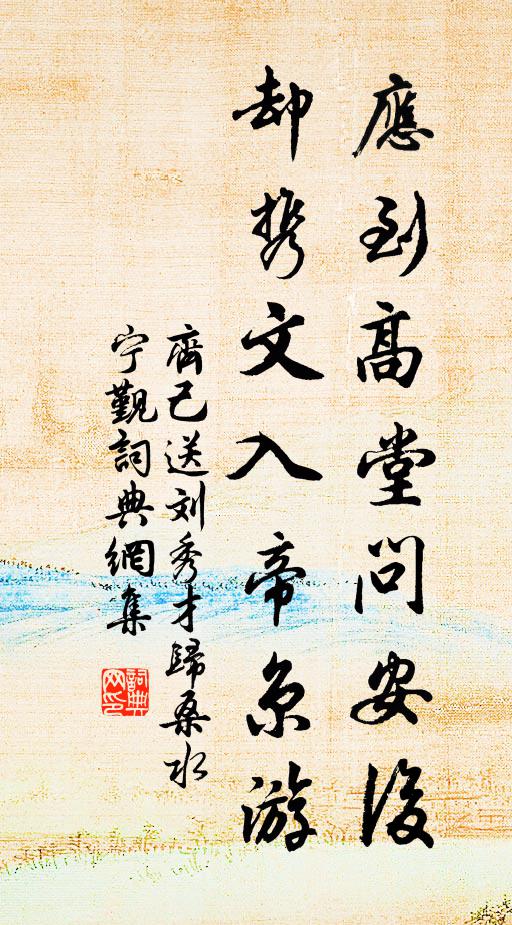 應到高堂問安後
却携文入帝京游
齊己送刘秀才歸桑水
宁觐詞典網集
詞典
网印